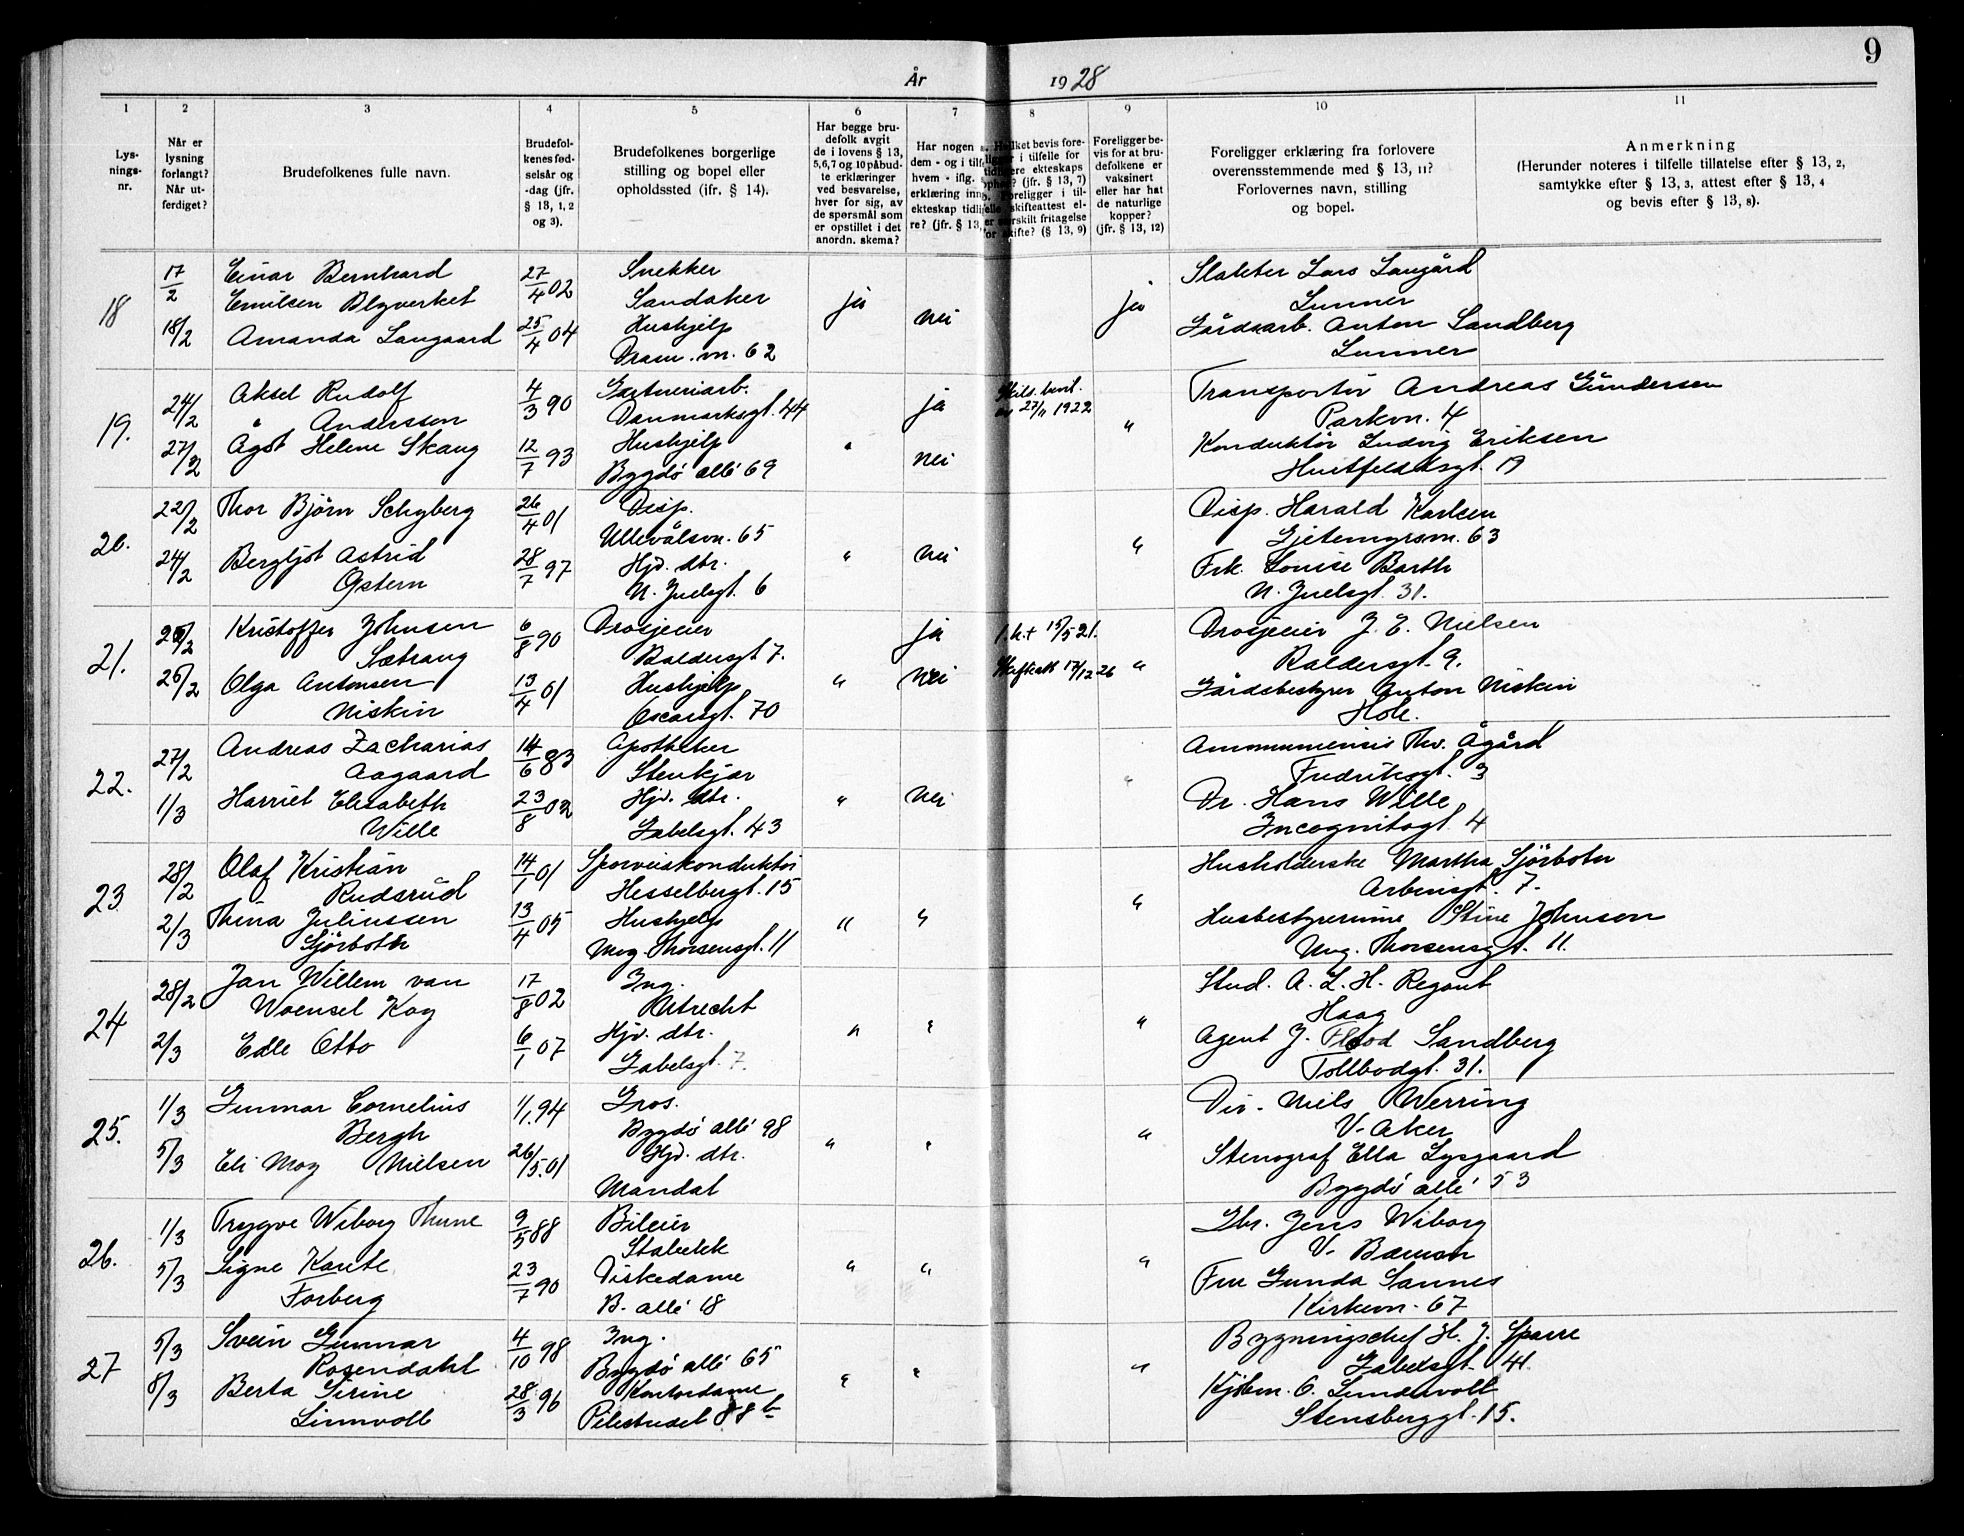 9
År 1928
1 2 3 4 5 6 7 8 9 10 11
Lys-
nings-
nr.
Når er
lysning
forlangt?
Når ut-
ferdiget?
Brudefolkenes fulle navn.
Brudefol-
kenes fød-
selsår og
-dag (jfr.
§ 13, 1, 2
og 3).
Brudefolkenes borgerlige
stilling og bopel eller
opholdssted (jfr. § 14).
Har begge bru-
defolk avgit
de i lovens § 13,
5,6,7 og 10 påbud-
te erklæringer
ved besvarelse,
hver for sig, av
de spørsmål som
er opstillet i det
anordn. skema?
Har nogen
dem - og i tilf
hvem - iflg.
erklæring inn
ekteskap tidli
re? (jfr. § 13,
ket bevis fore-
i tilfelle for
ekteskaps
? (jfr. § 13, 7)
Foreligger i til-
skifteattest el-
særskilt fritagelse
for skifte? (§ 13, 9)
Foreligger be-
vis for at bru-
defolkene er
vaksinert
eller har hat
de naturlige
kopper?
(jfr. § 13, 12)
Foreligger erklæring fra forlovere
overensstemmende med § 13, 11?
Forlovernes navn, stilling
og bopel.
Anmerkning
(Herunder noteres i tilfelle tillatelse efter § 13, 2,
samtykke efter § 13, 3, attest efter § 13, 4
og bevis efter § 13, 8).
18 17/2 Einar Bernhard 27/4 02 Snekker Slakter Lars Langård
Emilsen Blyverket Sandaker ja nei ja Lunner
18/2 Amanda Langaard 25/4 04 Hushjelp Gårdsarb. Anton Sandberg
Dram.vn. 62 Lunner
19. 24/2 Aksel Rudolf 4/3 90 Gartneriarb. ja Skils.bevil. Transportør Andreas Gundersen
Andersson Danmarksgt. 44 27/11 1922 " Parkvn. 4
27/2 Ågot Helene Skaug 12/7 93 Hushjelp " nei Konduktør Ludvig Eriksen
Bygdö allé 69 Huitfeldtsgt. 19
20. 22/2 Thor Björn Schyberg 26/4 01 Disp. Disp. Harald Karlsen
Ullevålsvn. 65 " nei " Gjetemyrsvn. 63
24/2 Bergljot Astrid 28/7 97 Hjv. dtr. Frk. Louise Barth
Östern N. Juelsgt. 6 N. Juelsgt. 31.
21. 25/2 Kristoffer Johnsen 6/8 90 Drosjeeier ja 15/5 21. Drosjeeier J. E. Nielsen
Sætrang Baldersgt. 7. Baldersgt. 9.
26/2 Olga Antonsen 13/4 01 Hushjelp " nei Skifteatt 17/12 26 " Gårdsbestyrer Anton Niskin
Niskin Oscarsgt. 70 Hole.
22. 27/2 Andreas Zacharias 14/6 83 Apotheker Thv. Ågård
Aagaard Stenkjær " Fredriksgt. 3
1/3 Harriet Elisabeth 23/8 02 Hjv. dtr. " nei Dr. Hans Wille
Wille Gabelsgt. 43 Incognitogt. 4
23 28/2 Olaf Kristian 14/1 01 Sporveiskonduktör Husholderske Martha Sjörbotn
Rudsrud Hesselbergt. 15 " Arbinsgt. 7.
2/3 Thina Juliussen 13/4 05 Hushjelp " " Husbestyrerinne Stine Johnson
Sjörbotn Mog. Thorsensgt. 11 Mog. Thorsensgt. 11.
24 28/2 Jan Willem van 17/8 02 Ing. Stud. A. L. H. Regout
Woensel Kog Utrecht " Haag
2/3 Edle Otto 6/1 07 Hjv. dtr. " " Agent J. Flood Sandberg
Gabelsgt. 7. Tollbodgt. 31.
25. 1/3 Gunnar Cornelius 1/1 94 Gros. Dir. Niels Werring
Bergh Bygdö allé 98 " V. Aker
5/3 Eli Moy Nielsen 26/5 01 Hjv. dtr. " " Stenograf Ella Lysgaard
Mandal Bygdö allé 53
26. 1/3 Trygve Wiborg Thune 9/5 88 Bileier Gbr. Jens Wiborg
Stabekk V. Bærum
5/3 Signe Kante 23/7 90 Diskedame " " " Fru Gunda Sannes
Forberg B. allé 18 Kirkevn. 67
27 5/3 Svein Gunnar 4/10 98 Ing. Bygningschef H. J. Sparre
Rosendahl Bygdö allé 65 " Gabelsgt. 41.
8/3 Berta Sirine 28/3 96 Kontordame " " Kjöbm. O. Lundevoll
Linnvoll Pilestredet 88b Stensberggt. 15.